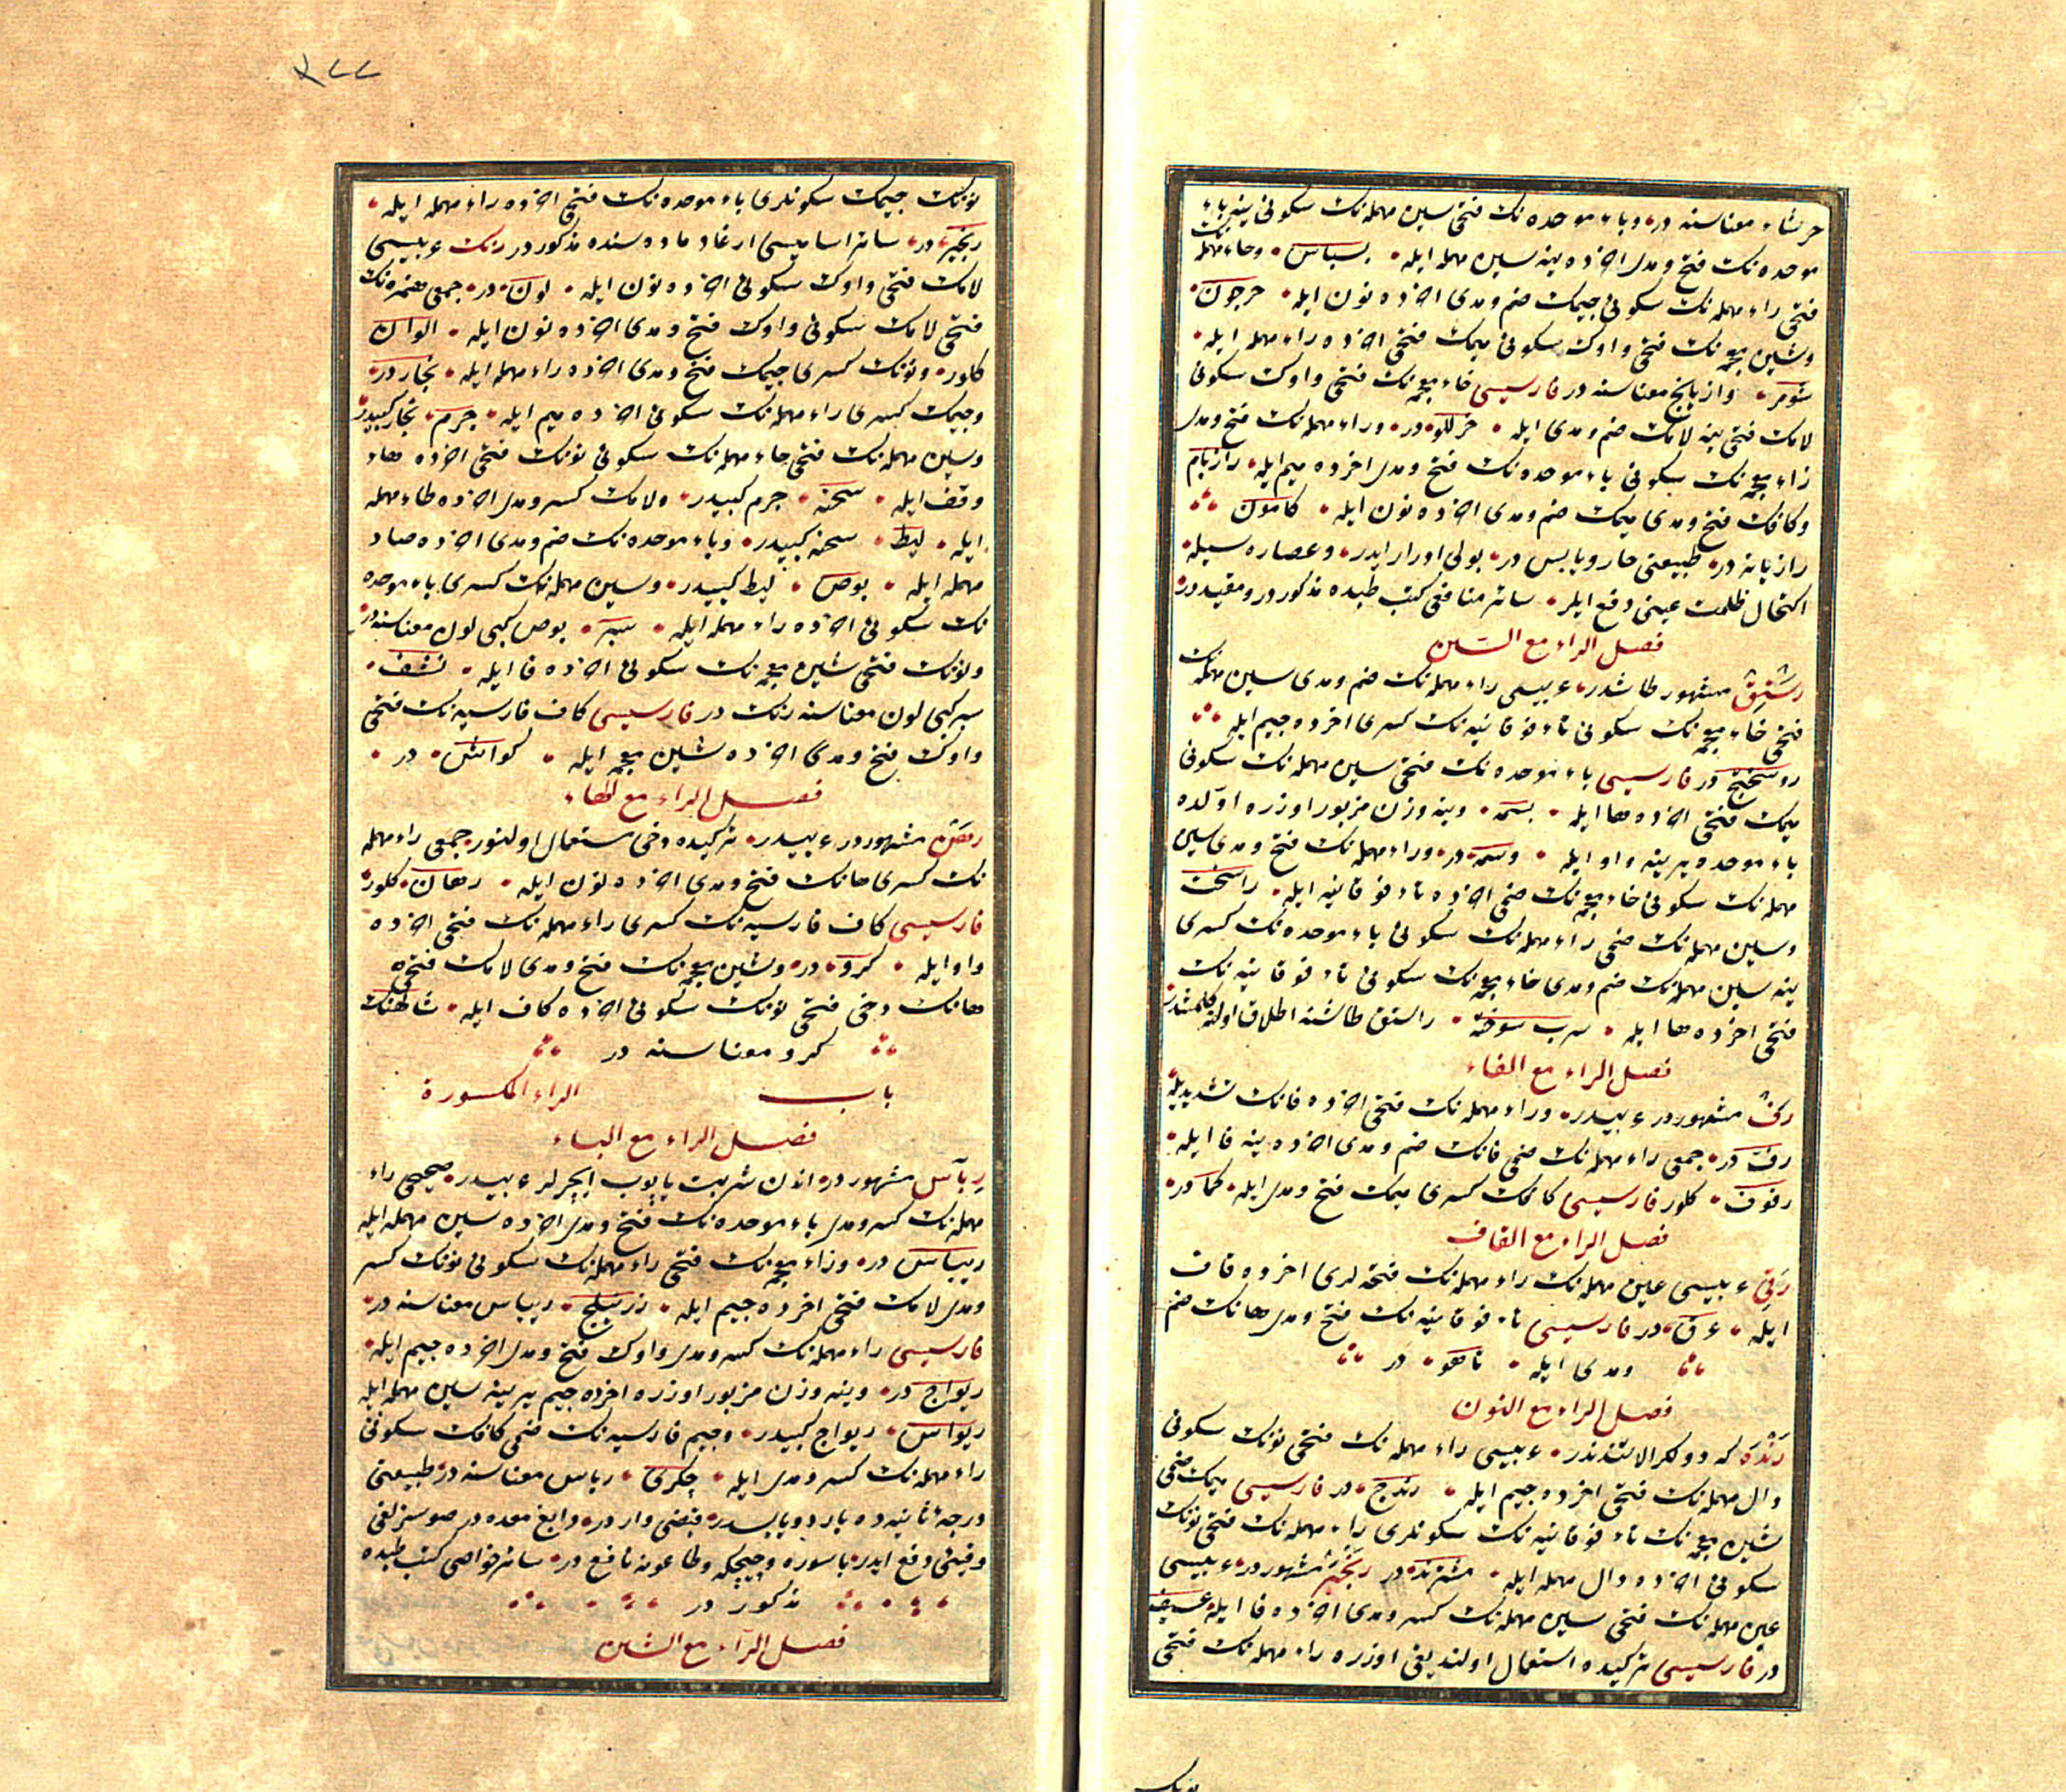 حرشاء معناسنه در وباء موحده نك فتحى سين مهمله نك سكونى ينه باء
موحده نك فتح ومدى اخرده ينه سين مهمله ايله بسباس وحاء مهمله نك
فتحى راء مهمله نك سكونى جيمك ضم ومدى اخرده نون ايله حرجون
وشين معجمه نك فتحى واوك سكونى ميمك فتحى اخرده راء مهمله ايله
شومر وازيانج معناسنه در فارسيسى خاء معجمه نك فتحى واوك سكونى
لامك فتحى ينه لامك ضم ومدى ايله در وراء مهمله نك فتح ومدى
زاء معجمه نك سكونى باء موحده نك فتح ومدى اخرده ميم ايله رازبام
وكافك فتح ومدى ميمك ضم ومدى اخرده نون ايله كامون
رازيانه در طبيعتى حار ويابس در بولى ادرار ايدر وعصاره سيله
اكتحال ظلمت عينى دفع ايلر سائر منافعى كتب طبده مذكور در ومقيد در
فصل الراء مع السين
مشهور طاشدر عربيسى راء مهمله نك ضم ومدى سين مهمله نك
فتحى خاء معجمه نك سكونى تاء فوقانيه نك كسرى اخرده جيم ايله
روسختج در فارسيسى باء موحده نك فتحى سين مهمله نك سكونى
ميمك فتحى اخرده ها ايله بسمه وينه وزن مزبور اوزره اولده
باء موحده يرينه واو ايله وسمه در وراء مهمله نك فتح ومدى سين
مهمله نك سكونى خاء معجمه نك ضمى اخرده تاء فوقانيه ايله راسخت
وسين مهمله نك ضمى راء مهمله نك سكونى باء موحده نك كسرى
ينه سين مهمله نك ضم ومدى خاء معجمه نك سكونى تاء فوقانيه نك
فتحى اخرده ها ايله سرب سوخته راستق طاشنه اطلاق اولنه كلمشدر
فصل الراء مع الفاء
رف مشهور در عربيدر وراء مهمله نك فتحى اخرده فانك تشديديله
رف در جمعى راء مهمله نك ضمى فانك ضم ومدى اخرده ينه فا ايله
رفوف كلور فارسيسى كافك كسرى ميمك فتح ومدى ايله كما در
فصل الراء مع القاف
رقى عربيسى عين مهمله نك راء مهمله نك فتحه لرى اخرده قاف
ايله عرق در فارسيسى تاء فوقانيه نك فتح ومدى هانك ضم
ومدى ايله تاهو در
فصل الراء مع النون
رنده كه دولكر التندندر عربيسى راء مهمله نك فتحى نونك سكونى
دال مهمله نك فتحى اخرده جيم ايله رندج در فارسيسى ميمك ضمى
شين معجمه نك تاء فوقانيه نك سكونلرى راء مهمله نك فتحى نونك
سكونى اخرده دال مهمله ايله مشترند در رنجبر مشهور در عربيسى
عين مهمله نك فتحى سين مهمله نك كسر ومدى اخرده فا ايله عسيف
در فارسيسى تركيده استعمال اولنديغى اوزره راء مهمله نك فتحى
نونك
٣٢٢
نونك جيمك سكونلرى باء موحده نك فتحى اخرده راء مهمله ايله
رنجبر در سائر اساميسى ارغاد ماده سنده مذكور در رنك عربيسى
لامك فتحى واوك سكونى اخرده نون ايله لون در جمعى همزه نك
فتحى لامك سكونى واوك فتح ومدى اخرده نون ايله الوان
كلور ونونك كسرى جيمك فتح ومدى اخرده راء مهمله ايله نجار در
وجيمك كسرى راء مهمله نك سكونى اخرده ميم ايله جرم نجار كبيدر
وسين مهمله نك فتحى حاء مهمله نك سكونى نونك فتحى اخرده هاء
وقف ايله سحنه جرم كبيدر ولامك كسر ومدى اخرده طاء مهمله
ايله ليط سحنه كبيدر وباء موحده نك ضم ومدى اخرده صاد
مهمله ايله بوص ليط كبيدر وسين مهمله نك كسرى باء موحده
نك سكونى اخرده راء مهمله ايله سبر بوص كبى لون معناسنه در
ونونك فتحى شين معجمه نك سكونى اخرده فا ايله نشف
سبر كبى لون معناسنه رنك در فارسيسى كاف فارسيه نك فتحى
واوك فتح ومدى اخرده شين معجمه ايله كواش در
فصل الراء مع الهاء
رهن مشهور در عربيدر تركيده دخى استعمال اولنور جمعى راء مهمله
نك كسرى هانك فتح ومدى اخرده نون ايله رهان كلور
فارسيسى كاف فارسيه نك كسرى راء مهمله نك فتحى اخرده
واو ايله كرو در وشين معجمه نك فتح ومدى لامك فتحى
هانك دخى فتحى نونك سكونى اخرده كاف ايله شالهنك
كرو معناسنه در
باب الراء المكسورة
فصل الراء مع الباء
رباس مشهور در اندن شربت ياپوب ايچرلر عربيدر صحيحى راء
مهمله نك كسر ومدى باء موحده نك فتح ومدى اخرده سين مهمله ايله
ريباس در وزاء معجمه نك فتحى راء مهمله نك سكونى نونك كسر
ومدى لامك فتحى اخرده جيم ايله زرنيلج ريباس معناسنه در
فارسيسى راء مهمله نك كسر ومدى واوك فتح ومدى اخرده جيم ايله
ريواج در وينه وزن مزبور اوزره اخرده جيم يرينه سين مهمله ايله
ريواس ريواج كبيدر وجيم فارسيه نك ضمى كافك سكونى
راء مهمله نك كسر ومدى ايله چكرى رباس معناسنه در طبيعتى
درجهٔ ثانيه ده بارد ويابسدر قبضى وار در دابغ معده در صوسزلغى
وقيئى دفع ايدر باسوره وچيچكه وطاعونه نافع در سائر خواصى كتب طبده
مذكور در
فصل الراء مع الشين